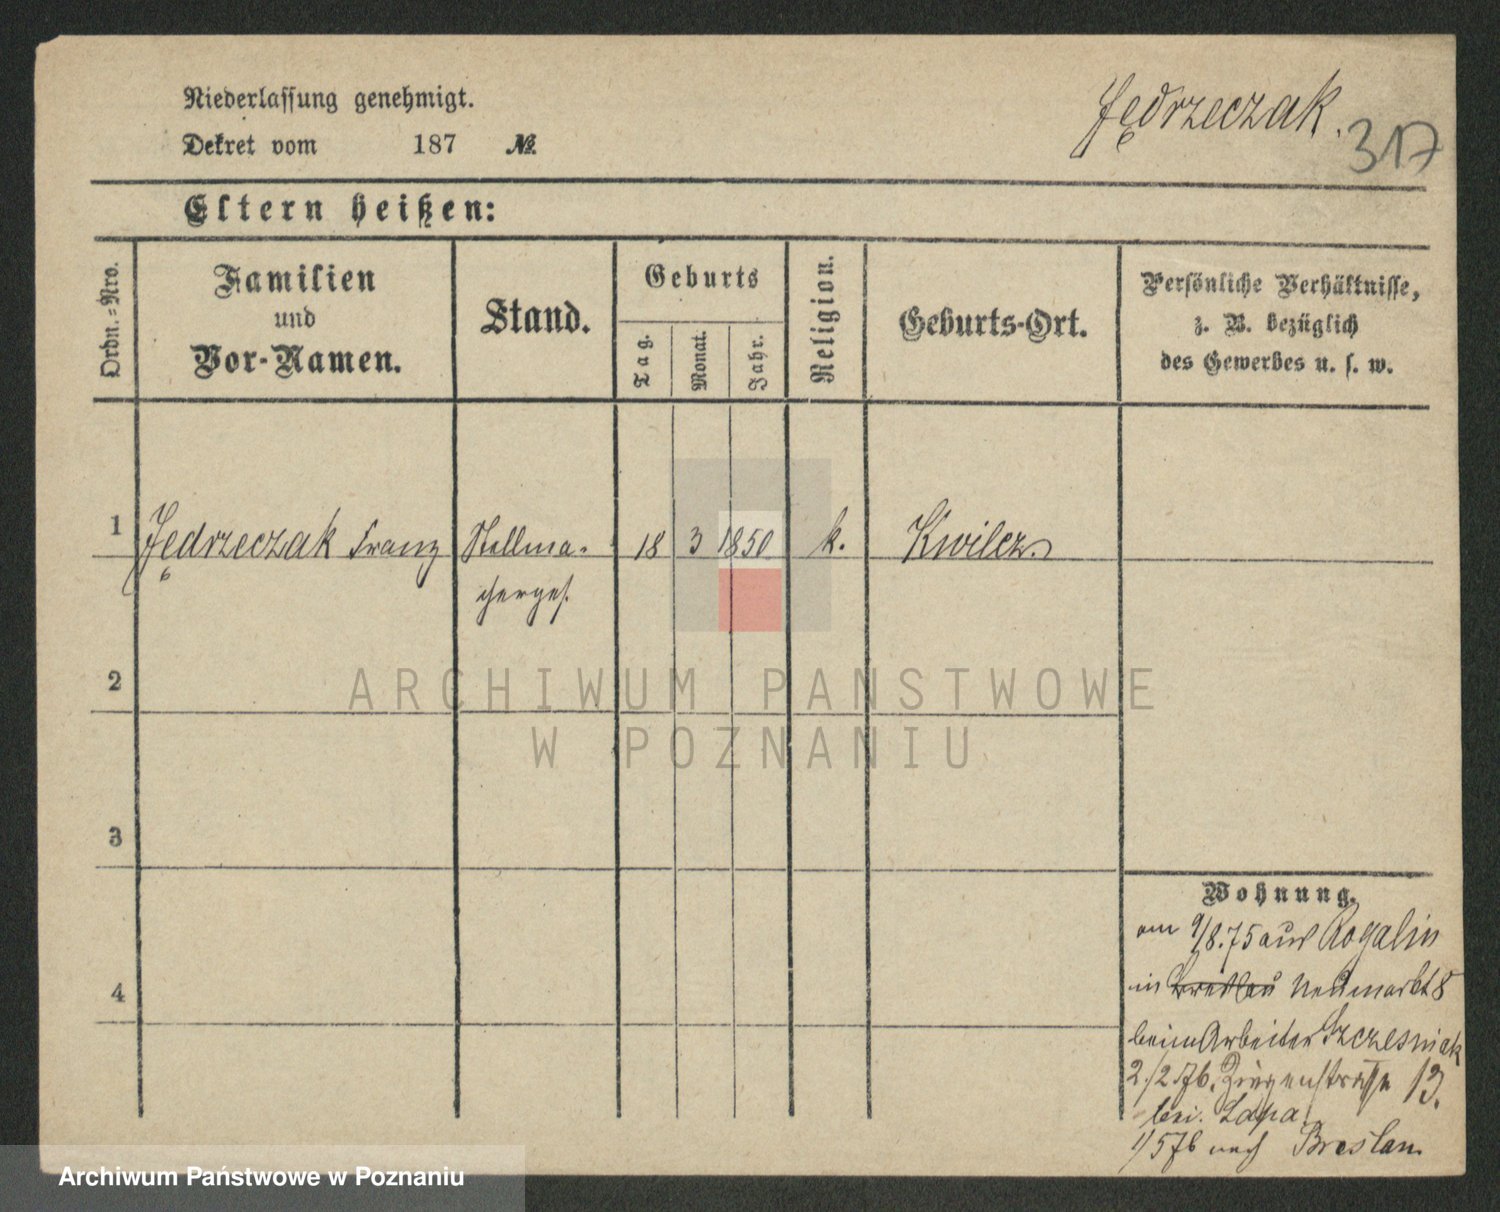 Niederlassung genehmigt.
Dekret vom 187 №
Jędrzeczak.
317
Eltern heißen:
Ordn.=Nro.
Familien
und
Vor-Namen.
Stand.
Geburts
Tag.
Monat.
Jahr.
Religion.
Geburts-Ort.
Persönliche Verhältnisse,
z. B. bezüglich
des Gewerbes u. s. w.
1 Jędrzeczak Franz Stellma- 18 3 1850 k. Kwilcz.
cherges.
2
3
4
Wohnung.
am 9/8.75 aus Rogalin
in Breslau Neumarkt 8
beim Arbeiter Szczesniak
2./2.76. Ziegenstraße 13.
bei. Lapa.
1/5 76 nach Breslau.
ARCHIWUM PANSTWOWE
W POZNANIU
Archiwum Państwowe w Poznaniu